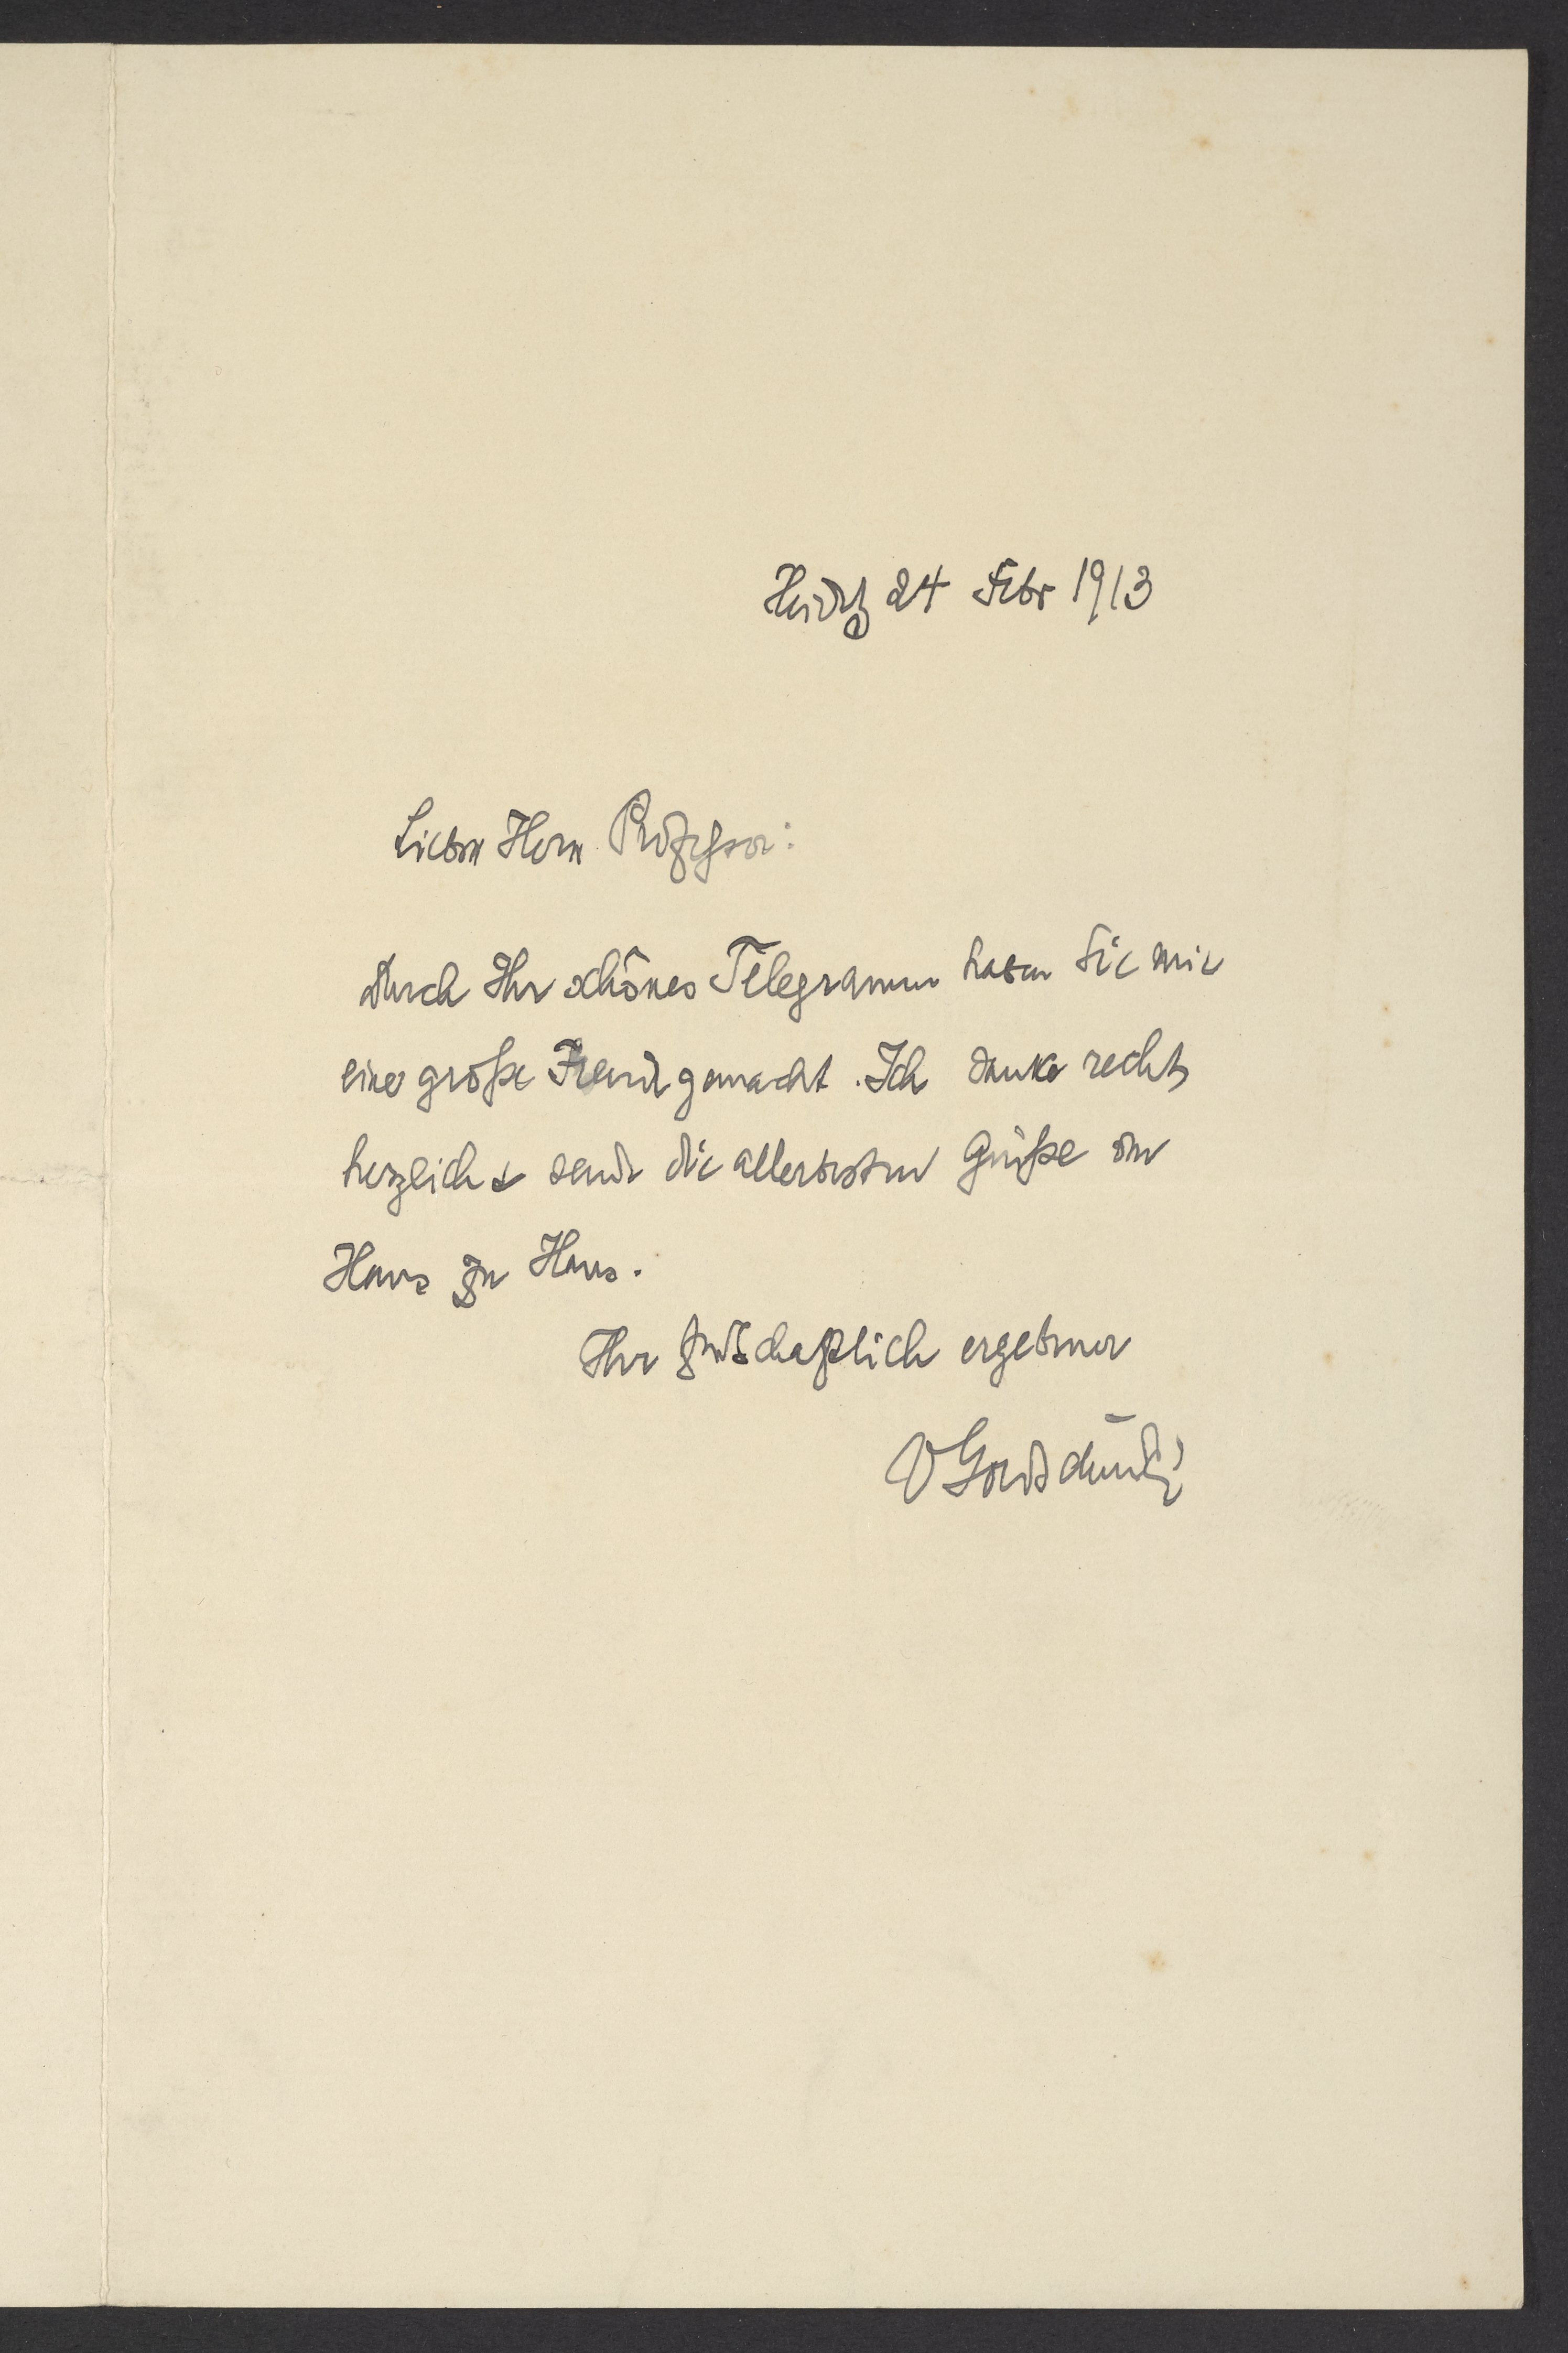 Heidlbg 24 Febr 1913
Lieber Herr Professor:
Durch Ihr schönes Telegramm haben Sie mir
eine große Freude gemacht. Ich danke recht
herzlich & sende die allerbesten Grüße von
Haus zu Haus.
Ihr freundschaftlich ergebener
VGoldschmidt